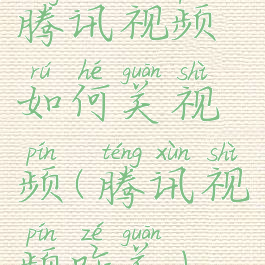 腾讯视频
rú hé guān shì
如何关视
pín téng xùn shì
频(腾讯视
pín zé guān
频咋关)